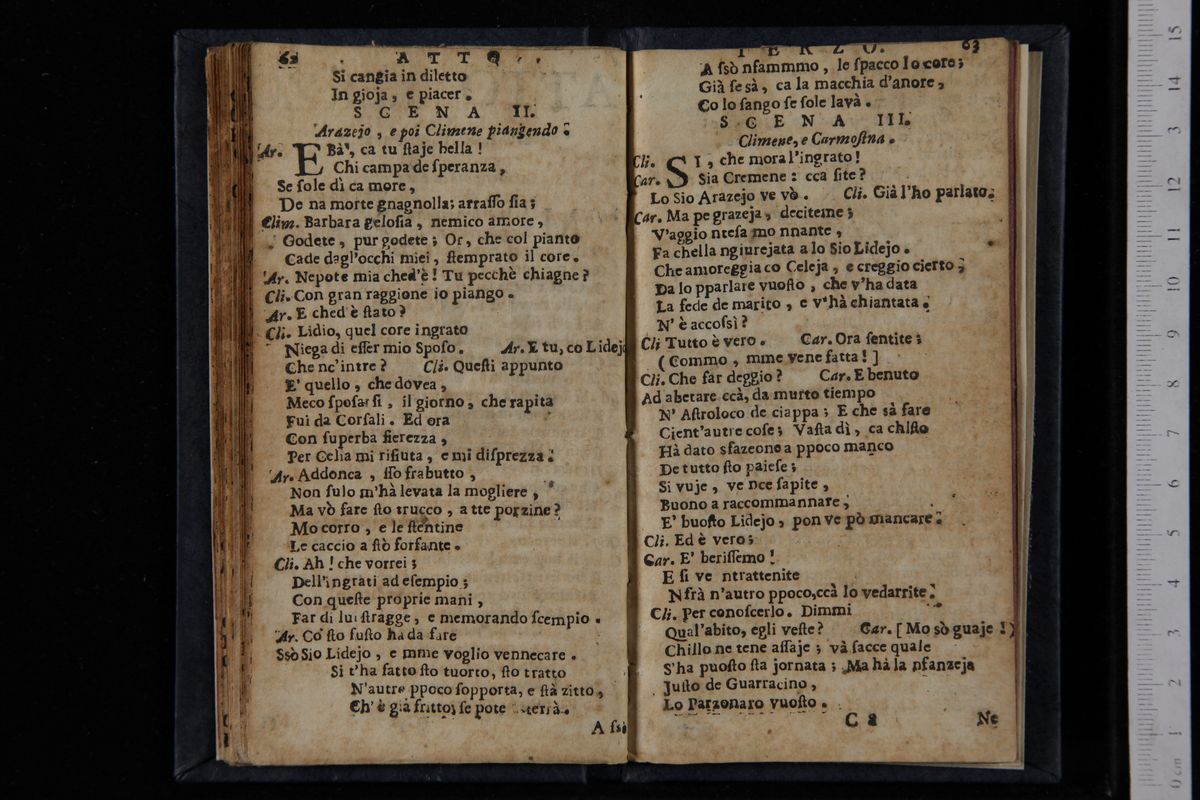 62 ATTO
Si cangia in diletto
In gioja, e piacer.
SCENA II.
Arazejo, e poi Climene piangendo.
Ar. EBà, ca tu ſtaje bella!
Chi campa de ſperanza,
Se ſole dì ca more,
De na morte gnagnolla; arraſſo ſia;
Clim. Barbara geloſia, nemico amore,
Godete, pur godete; Or, che col pianto
Cade dagl'occhi miei, ſtemprato il core.
Ar. Nepote mia ched'è! Tu pecchè chiagne?
Cli. Con gran raggione io piango.
Ar. E ched è ſtato?
Cli. Lidio, quel core ingrato
Niega di eſſer mio Spoſo. Ar. E tu, co Lidejo
Che nc'intre? Cli. Queſti appunto
E' quello, che dovea,
Meco ſpoſarſi, il giorno, che rapita
Fui da Corſali. Ed ora
Con ſuperba fierezza,
Per Celia mi rifiuta, e mi diſprezza.
Ar. Addonca, ſſo frabutto,
Non ſulo m'hà levata la mogliere,
Ma vò fare ſto trucco, a tte porzine?
Mo corro, e le ſtentine
Le caccio a ſtò forfante.
Cli. Ah! che vorrei;
Dell'ingrati ad eſempio;
Con queſte proprie mani,
Far di lui ſtragge, e memorando ſcempio.
Ar. Co ſto fuſto ha da fare
Ssò Sio Lidejo, e mme voglio vennecare.
Si t'ha fatto ſto tuorto, ſto tratto
N'autro ppoco ſopporta, e ſtà zitto,
Ch' è già fritto; ſe pote terrà.
A ſsò
TERZO. 63
A ſsò nfammmo, le ſpacco lo core;
Già ſe sà, ca la macchia d'anore,
Co lo ſango ſe ſole lavà.
SCENA III.
Climene, e Carmoſina.
Cli. SI, che mora l'ingrato!
Car. Sia Cremene: cca ſite?
Lo Sio Arazejo ve vò. Cli. Già l'ho parlato.
Car. Ma pe grazeja, deciteme;
V'aggio nteſa mo nnante,
Fa chella ngiurejata a lo Sio Lidejo.
Che amoreggia co Celeja, e creggio cierto;
Da lo pparlare vuoſto, che v'ha data
La fede de marito, e v'hà chiantata.
N' è accoſsì?
Cli Tutto è vero. Car. Ora ſentite;
(Commo, mme vene fatta!]
Cli. Che far deggio? Car. E benuto
Ad abetare ccà, da murto tiempo
N' Aſtroloco de ciappa; E che sà fare
Cient'autre coſe; Vaſta dì, ca chiſto
Hà dato sfazeone a ppoco manco
De tutto ſto paieſe;
Si vuje, ve nce ſapite,
Buono a raccommannare;
E' buoſto Lidejo, pon ve pò mancare.
Cli. Ed è vero;
Car. E' beriſſemo!
E ſi ve ntrattenite
Nfrà n'autro ppoco, ccà lo vedarrite.
Cli. Per conoſcerlo. Dimmi
Qual'abito, egli veſte? Car. [Mo sò guaje!)
Chillo ne tene aſſaje; và ſacce quale
S'ha puoſto ſta jornata; Ma hà la nfanzeja
Juſto de Guarracino,
Lo Parzonaro vuoſto.
C 2 Ne